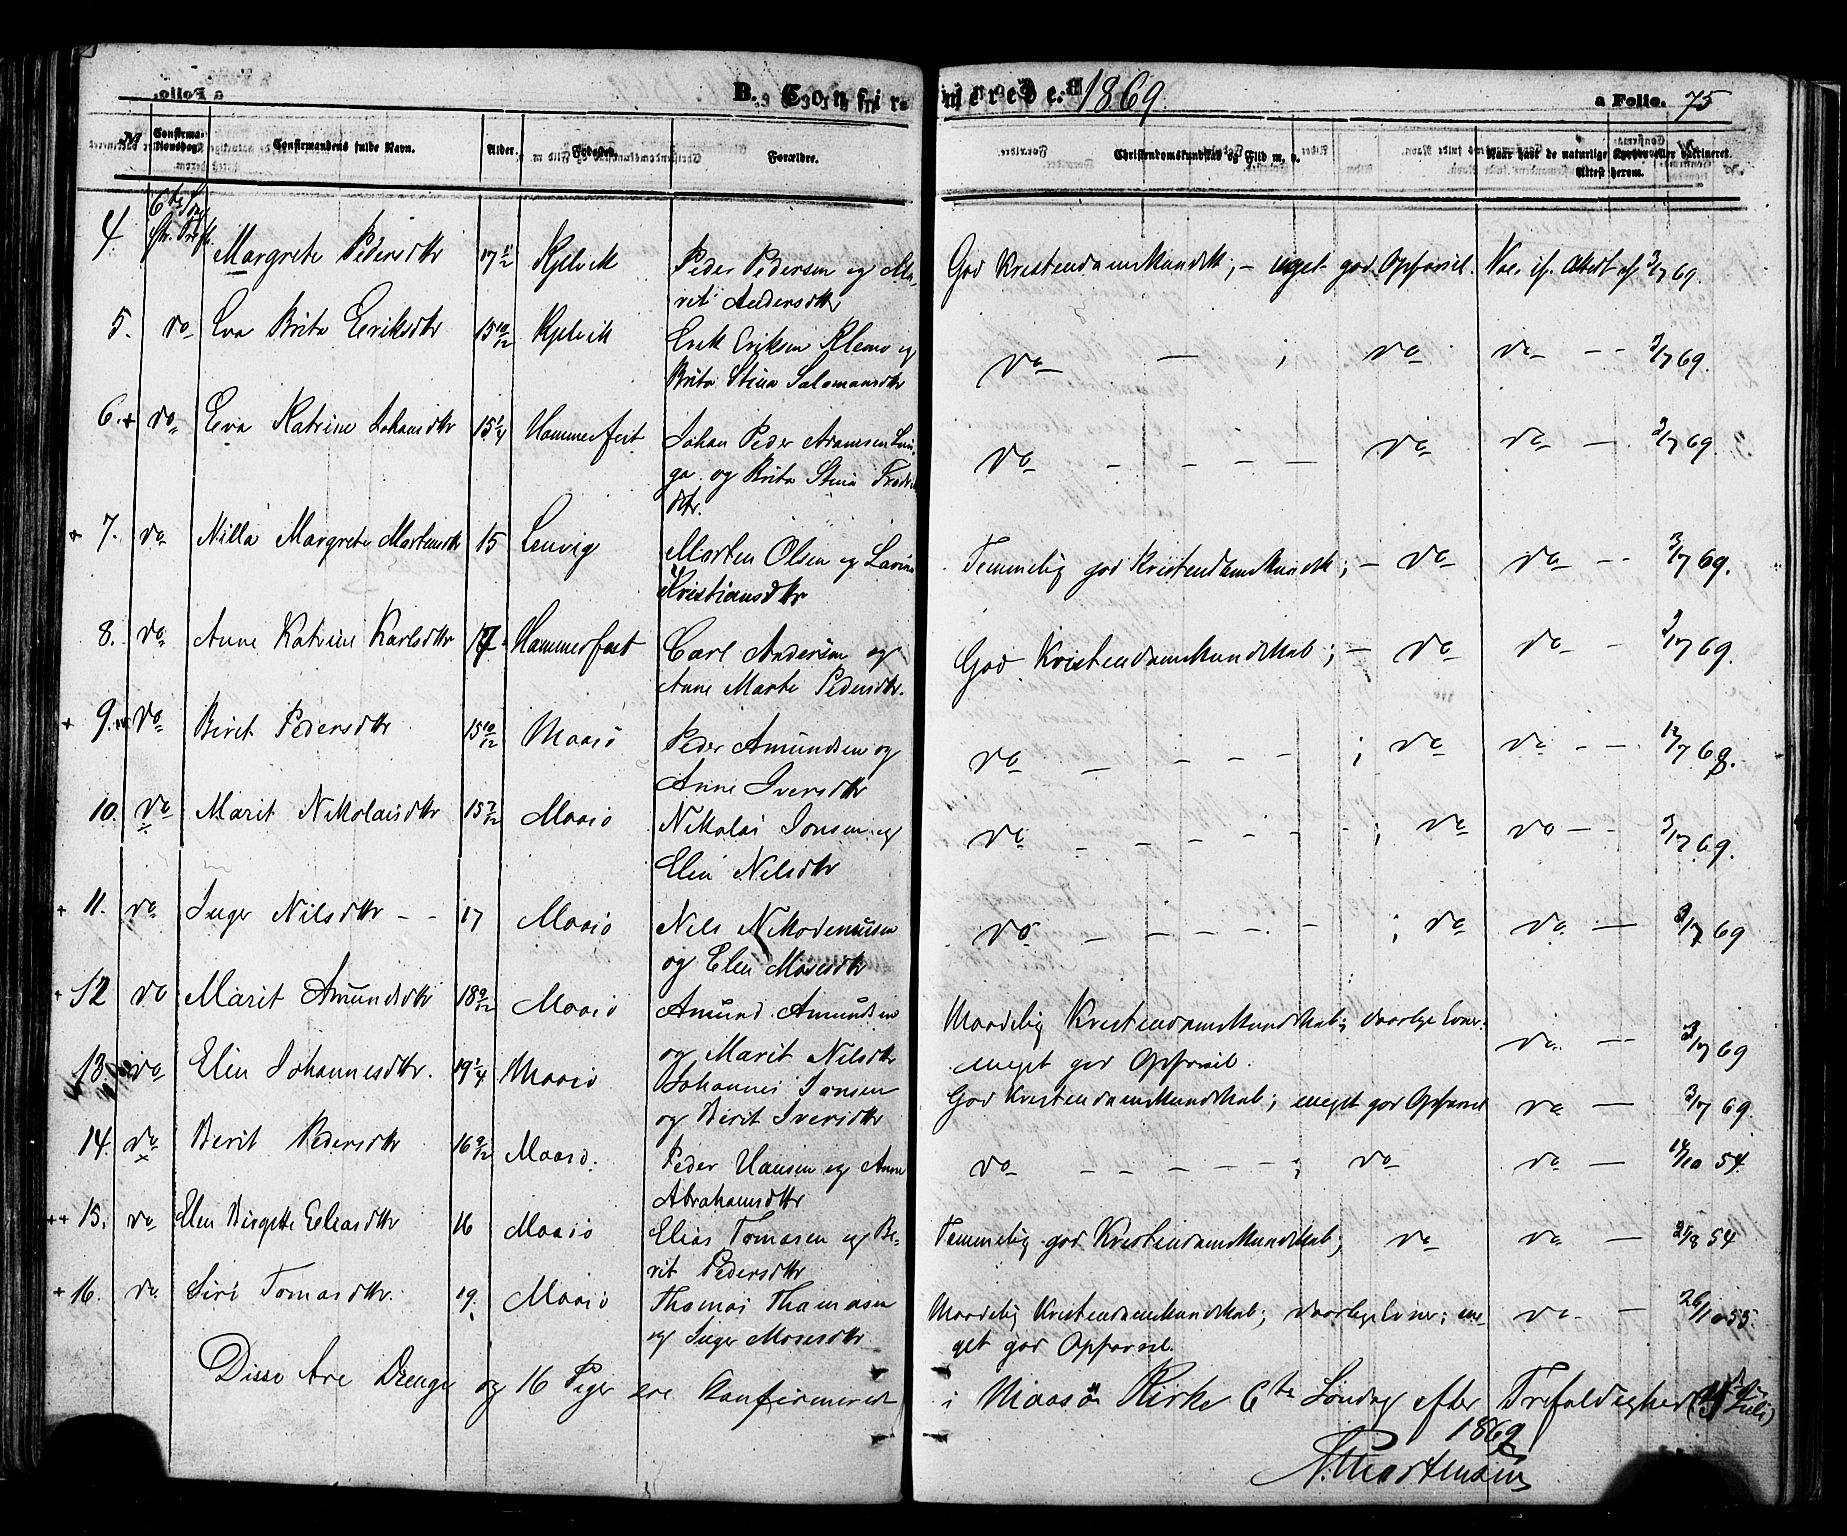 B. Confirmerede. 1869. a Folio. 75
№ Confirmationsdag. Confirmandens fulde Navn. Alder. Fødested. Forældre. Christendomskundskab og Flid m. v. Naar havt de naturlige Kopper eller vaccineret. Attest herom.
6te Søn.
4. eftr. Tref. Margrete Pedersdtr 17 1/2 Kjelvik Peder Pedersen og Ma- God Kristendomskundsk; – meget god Opførsel. Vac. if. Attest af 3/7 69.
rit Andersdtr
5. do Eva Brita Eriksdtr 15 10/12 Kjelvik Erik Eriksen Klemo og do — ; do do – – 3/7 69.
Brita Stina Salomonsdtr
6. + do Eva Katrine Johansdtr 15 1/4 Hammerfest Johan Peder Aramsen Lui- do – – – – do do – 3/7 69.
ga og Brita Stina Fredrik
dtr.
+ 7. do Nilla Margrete Martensdtr 15 Lenvig Morten Olsen og Lovina Temmelig god Kristendomskundsk; – do do – – 3/7 69.
Kristiansdtr
8. do Anne Katrine Karlsdtr 17 Hammerfest Carl Andersen og God Kristendomskundskab; – do do – 3/7 69.
Anne Marte Pedersdtr.
+ 9. do Berit Pedersdtr 15 10/12 Maasö Peder Amundsen og do – – – – ; do do – – 12/7 69.
Anne Iversdtr
10. do Marit Nikolaisdtr 15 7/12 Maasö Nikolai Jonsen og do – – – – ; do do – – 3/7 69.
Elen Nilsdtr
+ 11. do Inger Nilsdtr – – 17 Maasö Nils Nikodemusen do – – – – – ; do do – – 3/7 69
og Elen Mosesdtr
+ 12 do Marit Amundsdtr 18 9/12 Maasö Amund Amundsen Maadelig Kristendomskundskab; daarlige Evner; do – – 3/7 69
og Marit Nilsdtr meget god Opførsel.
13. do Elen Johannesdtr. 19 1/4 Maasö Johannes Jonsen God Kristendomskundskab; meget god Opførsel do – 3/7 69.
og Berit Iversdtr
14. do Berit Pedersdtr 16 9/12 Maasö. Peder Hansen og Anne do – – – – – ; do do – 14/10 54.
Abrahamsdtr
++ 15. do Elen Birgitte Eliasdtr 16 Maasö Elias Tomasen og Be- Temmelig god Kristendomskundskab; do do – 25/8 54
rit Pedersdtr
+ 16. do Siri Tomasdtr. 19. Maasö Thomas Thomasen Maadelig Kristendomskundskab; daarlige Evner; me- do – 26/10 55.
og Inger Mosesdtr get god Opførsel.
Disse Drenge og 16 Piger ere konfirmeret i Maasö Kirke 6te Søndag efter Trefoldighed Juli)
1869